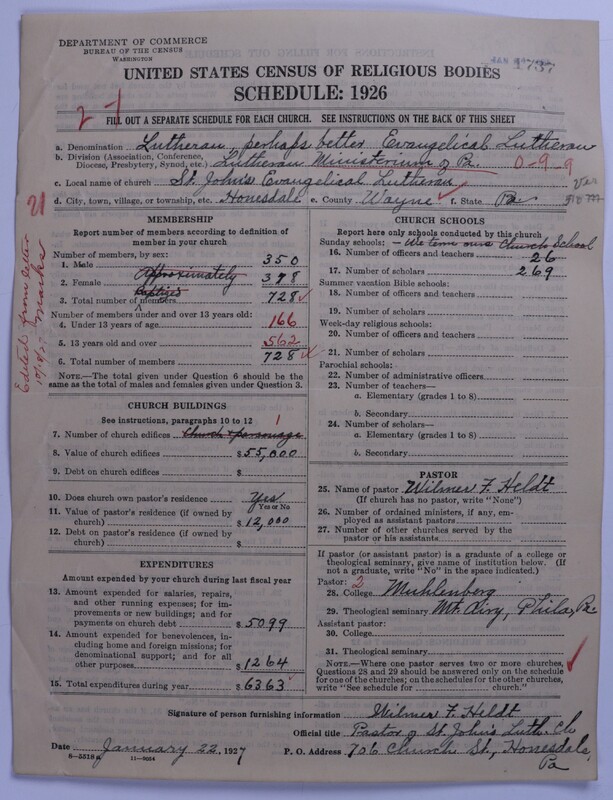 DEPARTMENT OF COMMERCE
BUREAU OF THE CENSUS
WASHINGTON
1737
UNITED STATES CENSUS OF RELIGIOUS BODIES
SCHEDULE: 1926
2-1
FILL OUT A SEPARATE SCHEDULE FOR EACH CHURCH. SEE INSTRUCTIONS ON THE BACK OF THIS SHEET
a. Denomination Lutheran, perhaps better Evangelical Lutheran
b. Division (Association, Conference, Diocese, Presbytery, Synod, etc.) Lutheran Ministerium of Pa. 0-9-9
c. Local name of church St. John's Evangelical Lutheran
d. City, town, village, or township, etc. Honesdale e. County Wayne f. State Pa
21
Edited from letter
MEMBERSHIP
Report number of members according to definition of member in your church
Number of members, by sex:
1. Male 350
Approximately
2. Female 378
Baptised
3. Total number of members 728
Number of members under and over 13 years old:
4. Under 13 years of age 166
5. 13 years old and over 562
6. Total number of members 728
NOTE.—The total given under Question 6 should be the same as the total of males and females given under Question 3.
CHURCH BUILDINGS
See instructions, paragraphs 10 to 12
7. Number of church edifices Church & parsonage 1
8. Value of church edifices $55,000
9. Debt on church edifices $
10. Does church own pastor's residence Yes
Yes or No
11. Value of pastor's residence (if owned by church) $12,000
12. Debt on pastor's residence (if owned by church) $
EXPENDITURES
Amount expended by your church during last fiscal year
13. Amount expended for salaries, repairs, and other running expenses; for improvements or new buildings; and for payments on church debt $5099
14. Amount expended for benevolences, including home and foreign missions; for denominational support; and for all other purposes $1264
15. Total expenditures during year $6363
CHURCH SCHOOLS
Report here only schools conducted by this church
Sunday schools: - We term ours Church School
16. Number of officers and teachers 26
17. Number of scholars 269
Summer vacation Bible schools:
18. Number of officers and teachers
19. Number of scholars
Week-day religious schools:
20. Number of officers and teachers
21. Number of scholars
Parochial schools:
22. Number of administrative officers
23. Number of teachers—
a. Elementary (grades 1 to 8)
b. Secondary
24. Number of scholars—
a. Elementary (grades 1 to 8)
b. Secondary
PASTOR
25. Name of pastor Wilmer F. Heldt
(If church has no pastor, write "None")
26. Number of ordained ministers, if any, employed as assistant pastors
27. Number of other churches served by the pastor or his assistants
If pastor (or assistant pastor) is a graduate of a college or theological seminary, give name of institution below. (If not a graduate, write "No" in the space indicated.)
Pastor: 2
28. College Muhlenberg
29. Theological seminary Mt. Airy, Phila, Pa.
Assistant pastor:
30. College
31. Theological seminary
NOTE.—Where one pastor serves two or more churches, Questions 28 and 29 should be answered only on the schedule for one of the churches; on the schedules for the other churches, write "See schedule for ........ church."
Signature of person furnishing information Wilmer F. Heldt
Official title Pastor of St. John's Luth. Ch
Date January 22, 1927 P. O. Address 706 Church St., Honesdale, Pa
8-5518a 11-9054